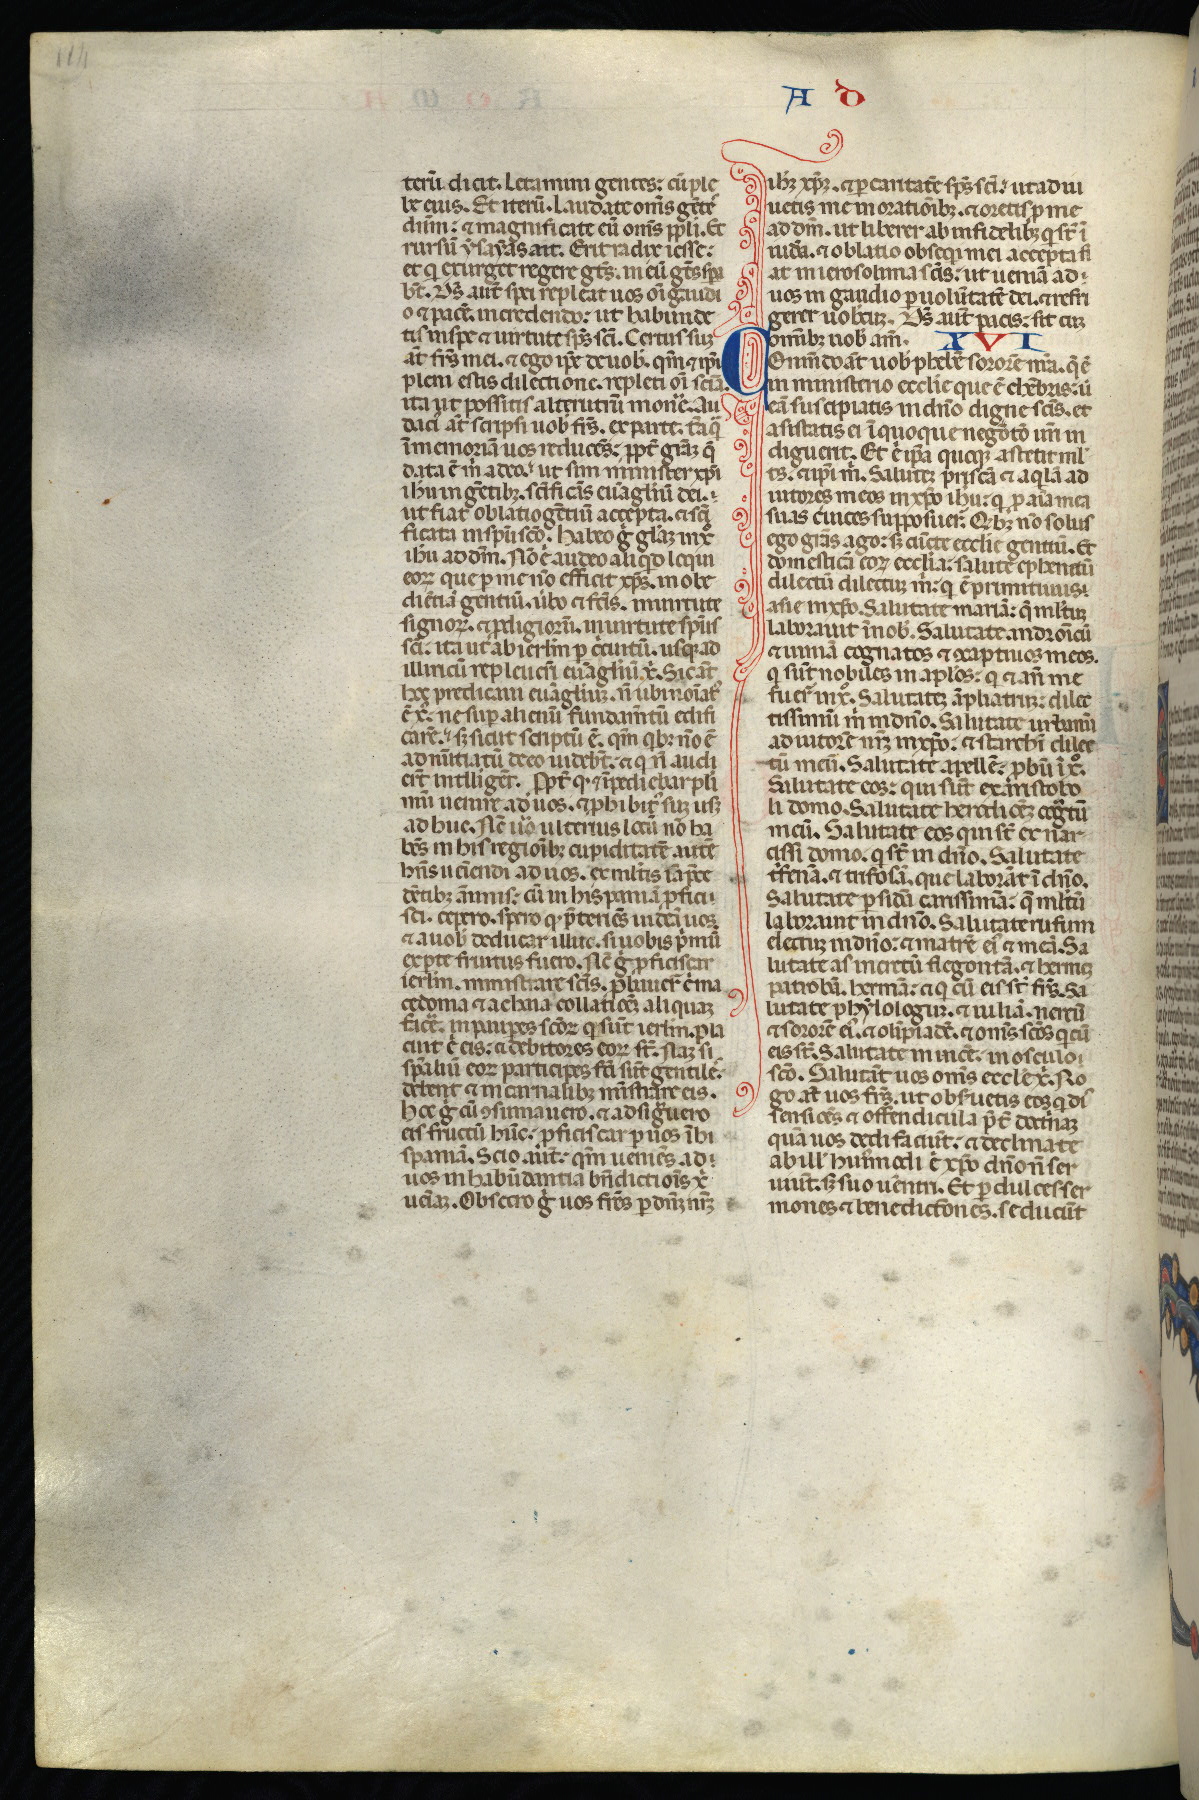 A D
terū dicit. Letamini gentes: cū ple
be eius. Et iterū. Laudate om̄s gētes
dn̄m: ⁊ magnificate eū om̄s pp̄li. Et
rursū ysayas ait. Erit radix iesse:
et q̇ exurget regere gtēs. in eū gtēs spa
bt̄. Ds̄ aut̄ spei repleat uos oī gaudi
o ⁊ pace. in credendo: ut habunde
tis in spe ⁊ uirtute sp̄s sc̄i. Certus suꝫ
at̄ frs̄ mei. ⁊ ego ip̄e de uob̄. qm̄ ⁊ ip̄i
pleni estis dilectione. repleti oī sciā.
ita ut possitis alterutrū monē. Au
daci at̄ scripsi uob̄ frs̄. ex parte. tāq̄
ī memoriā uos reducēs: ppt̄ grāꝫ q̄
data ē m̄ a deo. ut sim minister xp̄i
ih̄u in gētibꝫ. sc̄ificās euāgliū dei.
ut fiat oblatio gētiū accepta. ⁊ scī
ficata in sp̄u sc̄o. Habeo ḡ glāꝫ in xͦ
ih̄u ad dm̄. Nō ē audeo aliq̇d loqui
eoꝝ que p me nō efficit xp̄s. in obe
diētiā gentiū. ūbo ⁊ fc̄is. in uirtute
signoꝝ. ⁊ pdigiorū. in uirtute sp̄us
sc̄i. ita ut ab ierl̄m p circuitū. usqꝫ ad
illiricū repleuerī euāgliū xͥ. Sic aūt
hoc predicaui euāgliuꝫ. n̄ ubi noīat̄
ē xͦ: ne sup alienū fundam̄tū edifi
care. sꝫ sicut scriptū ē. qm̄ qibꝫ nō ē
adnūtiatū de eo uidebt̄. ⁊ q̇ n̄ audi
erūt intelligēt. Ppt̄ qͦ ⁊ īpediebar pli
mū uenire ad uos. ⁊ phibitꝰ suꝫ usqꝫ
ad huc. Nc̄ uͦ ulterius locū nō ha
bēs in his regioībꝫ cupiditatē autē
hn̄s ueniendi ad uos. ex mltīs iā prece
dētibꝫ ānnis: cū in hispaniā pficis
sci. cepero. spero qͦ pteriēs uideā uos
⁊ a uob̄ deducar illuc. si uobis pmū
ex pte fruitus fuero. Nc̄ ḡ pficiscar
ierl̄m. ministrare sc̄is. pbauert̄ ē ma
cedonia ⁊ achaia collationē aliquaꝫ
facē. in paupes sc̄oꝝ q̇ sunt ierl̄m. pla
cuit ē eis: ⁊ debitores eoꝝ st̄. Naꝫ si
sp̄aliū eoꝝ participes fc̄i sūt gentiles.
debent ⁊ in carnalibꝫ mīstrare eis.
hoc ḡ cū ꝯsumauero. ⁊ adsigͣuero
eis fructū hūc: pficiscar p uos ī hi
spaniā. Scio aūt: qm̄ ueniēs ad
uos in habūdantia bn̄dictiōis xͥ
ueniaꝫ. Obsecro ḡ uos frēs p dn̄ꝫ nrꝫ
ih̄ꝫ xp̄ꝫ. ⁊ p caritatē sp̄s sc̄i: ut adiu
uetis me in oratiōibꝫ. ⁊ oretis p me
ad dm̄. ut liberer ab infidelibꝫ q̇ st̄ ī
iudā. ⁊ oblatio obsequi mei accepta fi
at in ierosolima sc̄is: ut ueniā ad
uos in gaudio p uolūtatē dei. ⁊ refri
gerer uobcuꝫ. Ds̄ aut̄ pacis: sit cuꝫ
omībꝫ uob̄ am̄. XVI
Ommēdo at̄ uob̄ phebē sororē nrā. q̄ ē
in ministerio ecclīe que ē chēbris: ut
eā suscipiatis in dn̄o digne sc̄is. et
asistatis ei ī quoque negōto ur̄i in
diguerit. Et ē ip̄a quoqꝫ astetit ml̄
tis. ⁊ ip̄i m̄. Salutetꝫ priscā ⁊ aq̇lā ad
iutores meos in xp̄o ih̄u: q̇ p aīa mea
suas ceruices supposuer̄. Qibꝫ nō solus
ego grās ago: sꝫ cūcte ecclīe gentiū. Et
domesticā eoꝝ ecclīa: salutē ephenetū
dilectū dilectuꝫ m̄: q̇ ē primitiuus
asie in xp̄o. Salutate mariā: q̄ ml̄tuꝫ
laborauit in uob̄. Salutate andronicū
⁊ iuniā cognatos ⁊ ꝯcaptiuos meos.
q̇ sūt nobiles in aplōs: q̇ ⁊ an̄ me
fuer̄ in xͦ. Salutatꝫ āpliatuꝫ: dilec
tissimū m̄ in dn̄o. Salutate urbanū
adiutorē nrꝫ in xp̄o: ⁊ stachī dilec
tū meū. Salutate apellē: pbū ī xͦ.
Salutate eos: qui sūt ex aristobo
li domo. Salutate herodionē cogͣtū
meū. Salutate eos qui st̄ ex nar
cissi domo. q̇ st̄ in dn̄o. Salutate
trifenā. ⁊ trifosā. que laborāt ī dn̄o.
Salutate psidā carissimā: q̄ ml̄tū
laborauit in dn̄o. Salutate rufum
electuꝫ in dn̄o: ⁊ matrē eiꝰ ⁊ meā. Sa
lutate asincretū flegontā. ⁊ hermē
patrobā. hermā: ⁊ q̇ cū eis st̄ frs̄. Sa
lutate phylologuꝫ. ⁊ iuliā. nereū
⁊ sororē eiꝰ. ⁊ olīpiadē. ⁊ om̄s sc̄os q̇ cū
eis st̄. Salutate inuicē. in osculo
sc̄o. Salutāt uos om̄s eccle xͥ. Ro
go at̄ uos frs̄. ut obseruetis eos q̇ dis
sensiōes ⁊ offendicula pt̄ doct̄naꝫ
quā uos dedi faciūt: ⁊ declinate
ab ill̄. Huiꝰmodi ē xp̄o dn̄o n̄ ser
uiūt. sꝫ suo uentri. Et p dulces ser
mones ⁊ benedictiones. seducūt